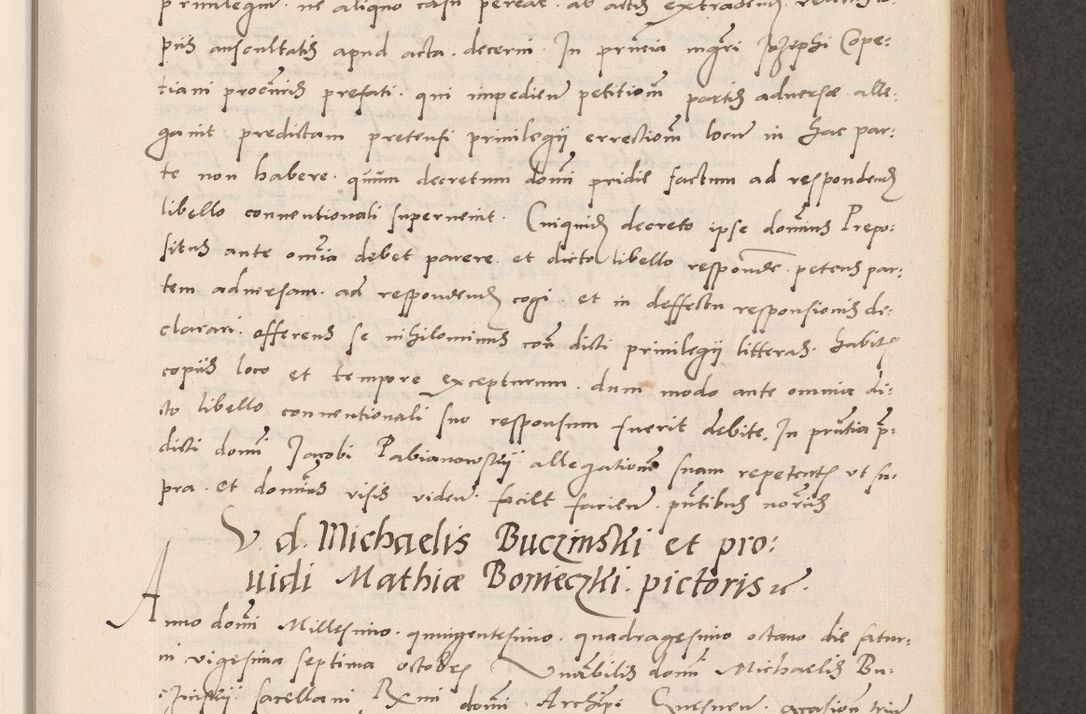 privilegium ne aliquo casu pereat ab actis
piis auscultatis apud acta decerni. In prntia mgri Jozephi Cope:
tiani procuris prefati. qui impedien petitiom partis adversæ alle:
gavit predictam pretensi privilegij errectiom locu in hac par:
te non habere. quum decretum domi pridie factum ad respondend
libello conventionali supervenit. Cuiquid decreto ipse domius Prepo:
situs ante omia debet parere. et dicto libello respondere. petens par:
tem adversam. ad respondend cogi. et in deffectu responsionis de:
clarari. offerens se nihilominus con dicti privilegij litteras. habitis
copiis loco et tempore excepturum. dum modo ante omnia di:
cto libello conventionali suo responsum fuerit debite. In prntia p:
dicti domi Jacobi Pabianowskij allegatiom suam repetentis ut su:
pra. et domius visis viden. facilt facien. pntibus notriis
V. d. Michaelis Buczinski et pro:
vidi Mathiæ Bonieczki. pictoris
Anno domi Millesimo. quingentesimo. quadragesimo octavo. die satur:
ni vigesima septima octobris Venabilis domi Michaelis Bu:
czinskij sacellani Rmi domi Archiepi